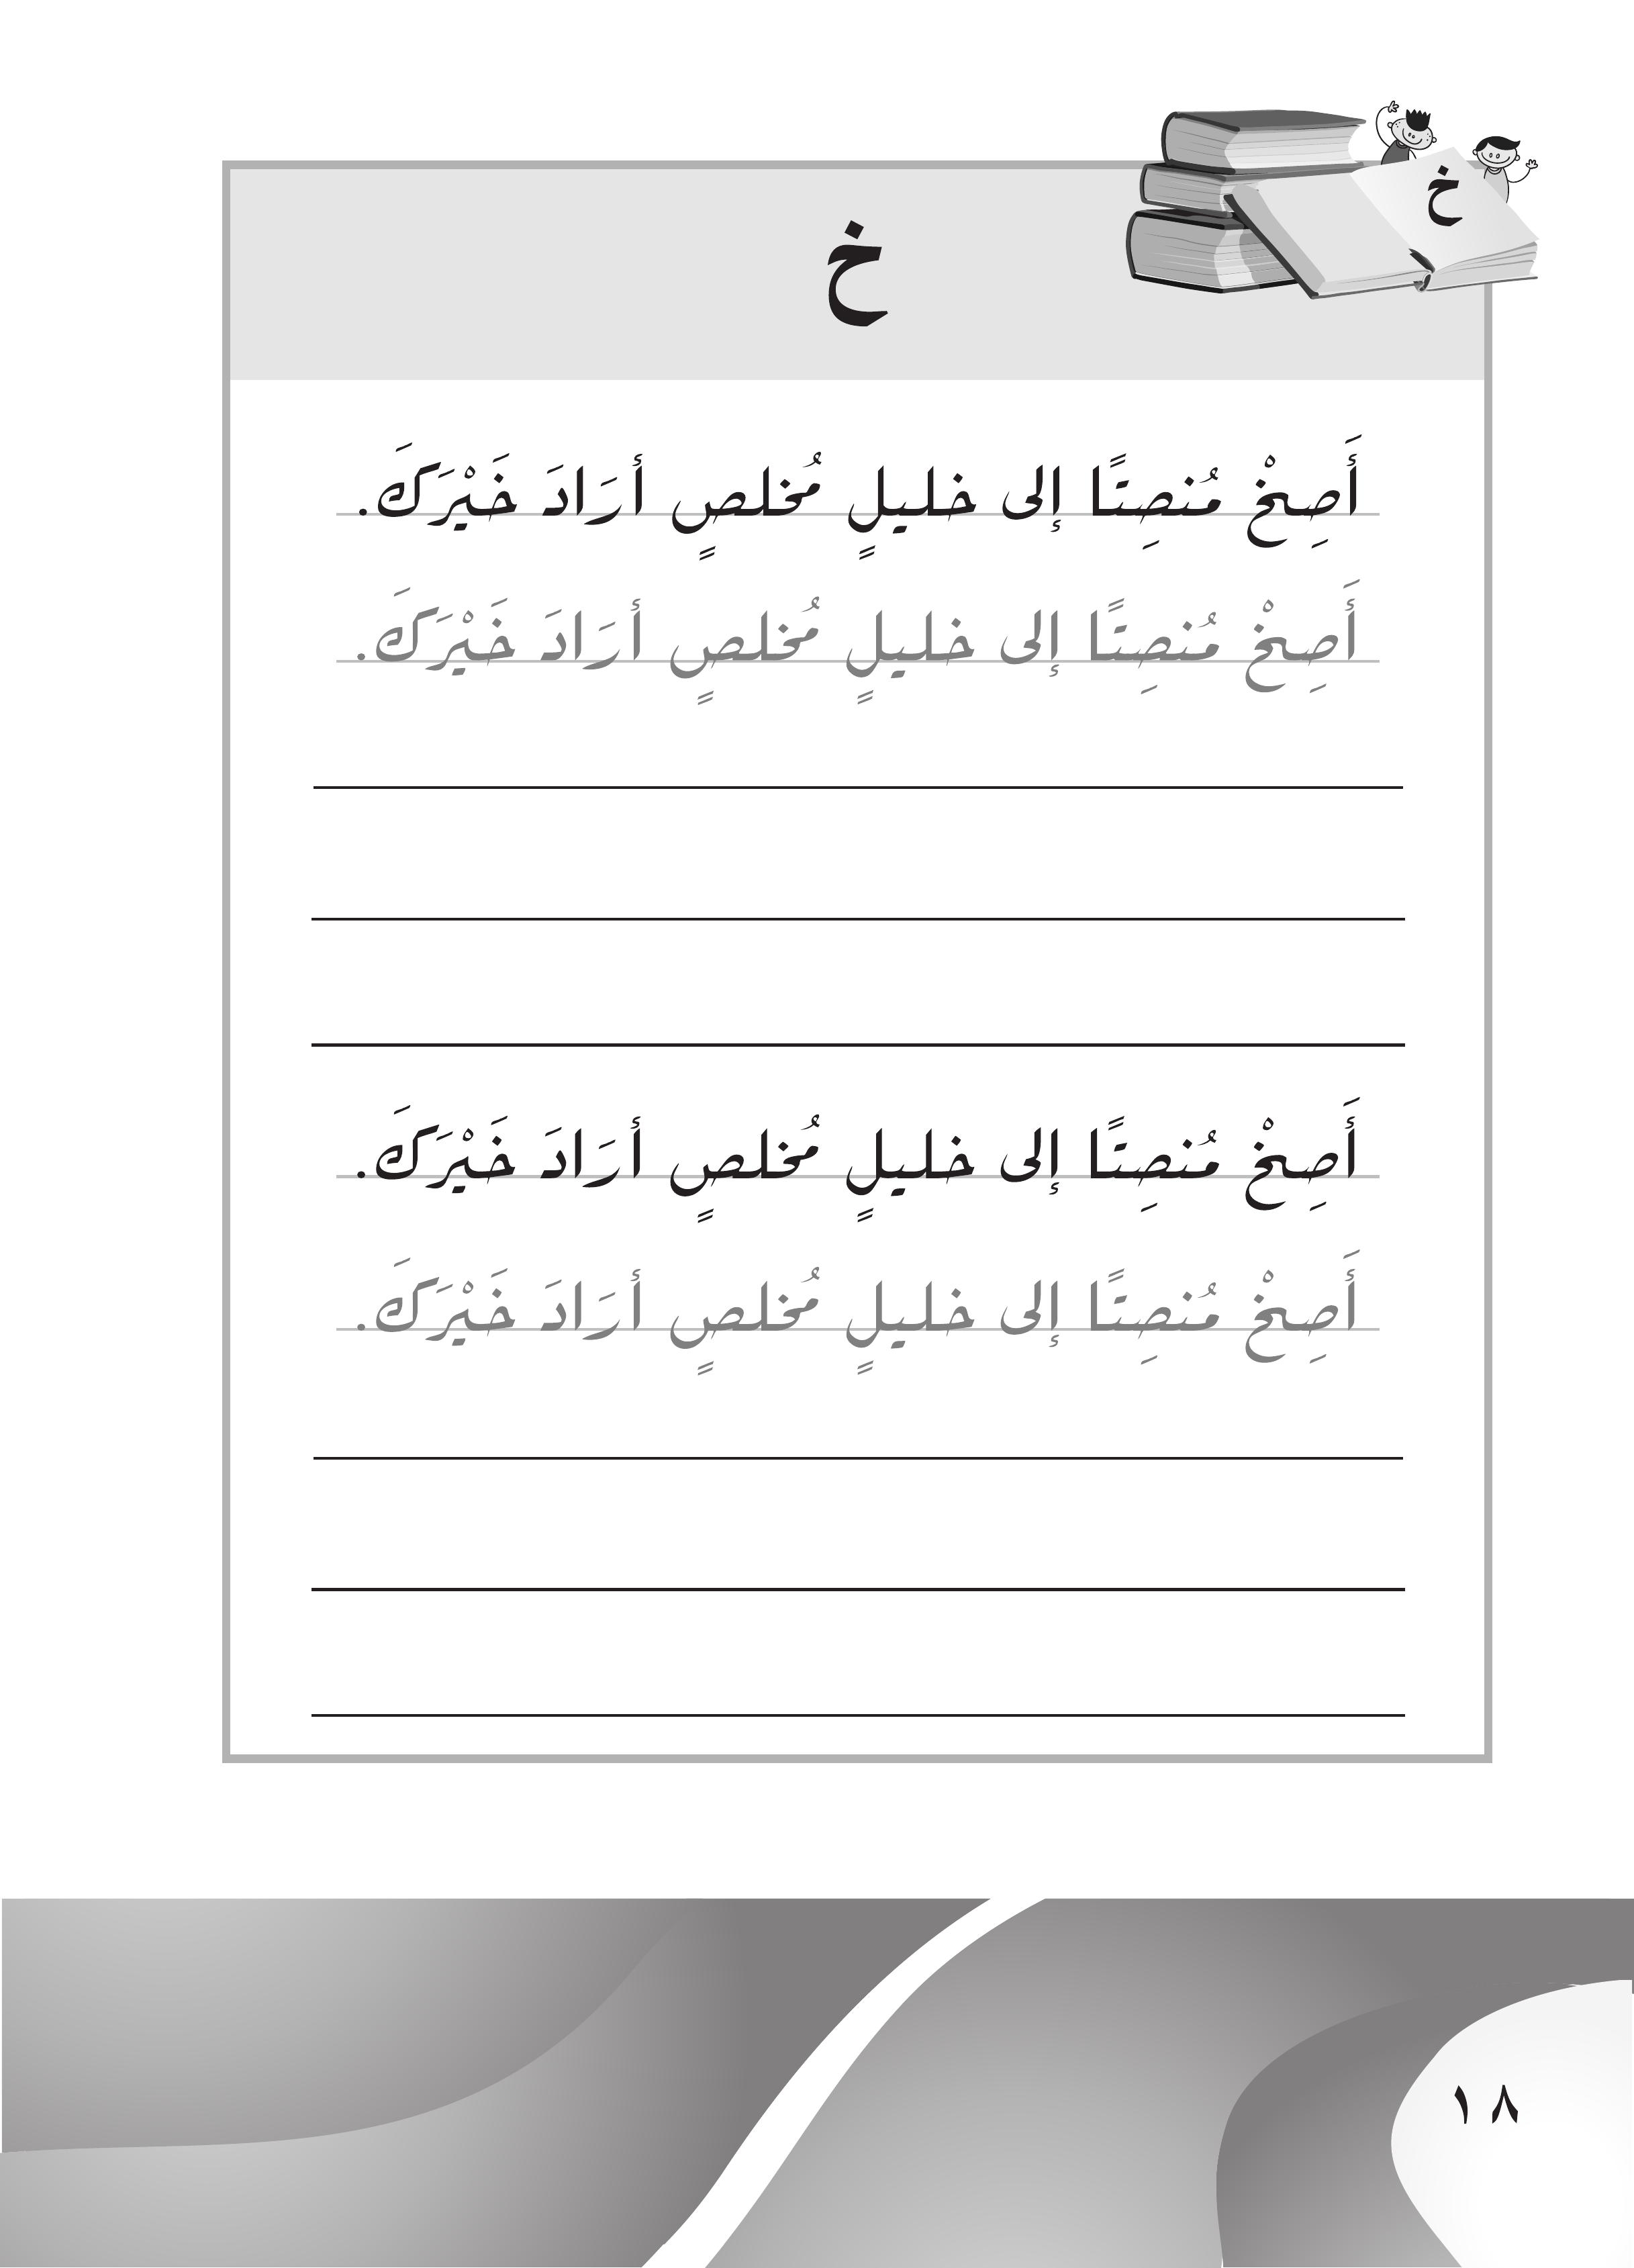 خ
خ
أَصِخْ مُنصِتًا إلى خليلٍ مُخلصٍ أرَادَ خَيْرَكَ.
أَصِخْ مُنصِتًا إلى خليلٍ مُخلصٍ أرَادَ خَيْرَكَ.
أَصِخْ مُنصِتًا إلى خليلٍ مُخلصٍ أرَادَ خَيْرَكَ.
أَصِخْ مُنصِتًا إلى خليلٍ مُخلصٍ أرَادَ خَيْرَكَ.
١٨